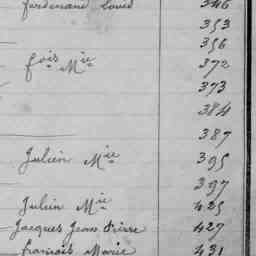 Ferdinand Louis 346
353
356
fois Mie 372
373
384
387
Julien Mie 395
397
Julien Mie 425
Jacques Jean Pierre 427
françois Marie 431